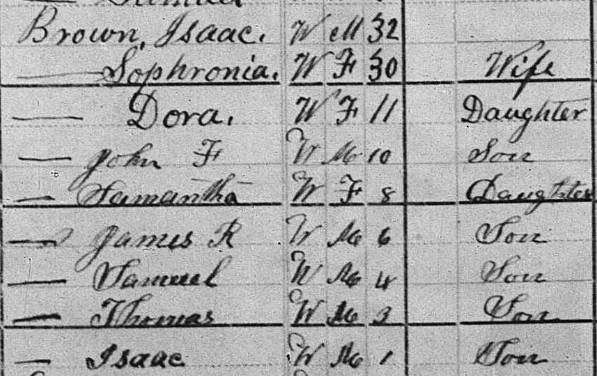 Samuel
Brown, Isaac. W M 32
— Sophronia. W F 30 Wife
— Dora. W F 11 Daughter
— John F W M 10 Son
— Samantha W F 8 Daughter
— James R W M 6 Son
— Samuel W M 4 Son
— Thomas W M 3 Son
— Isaac W M 1 Son